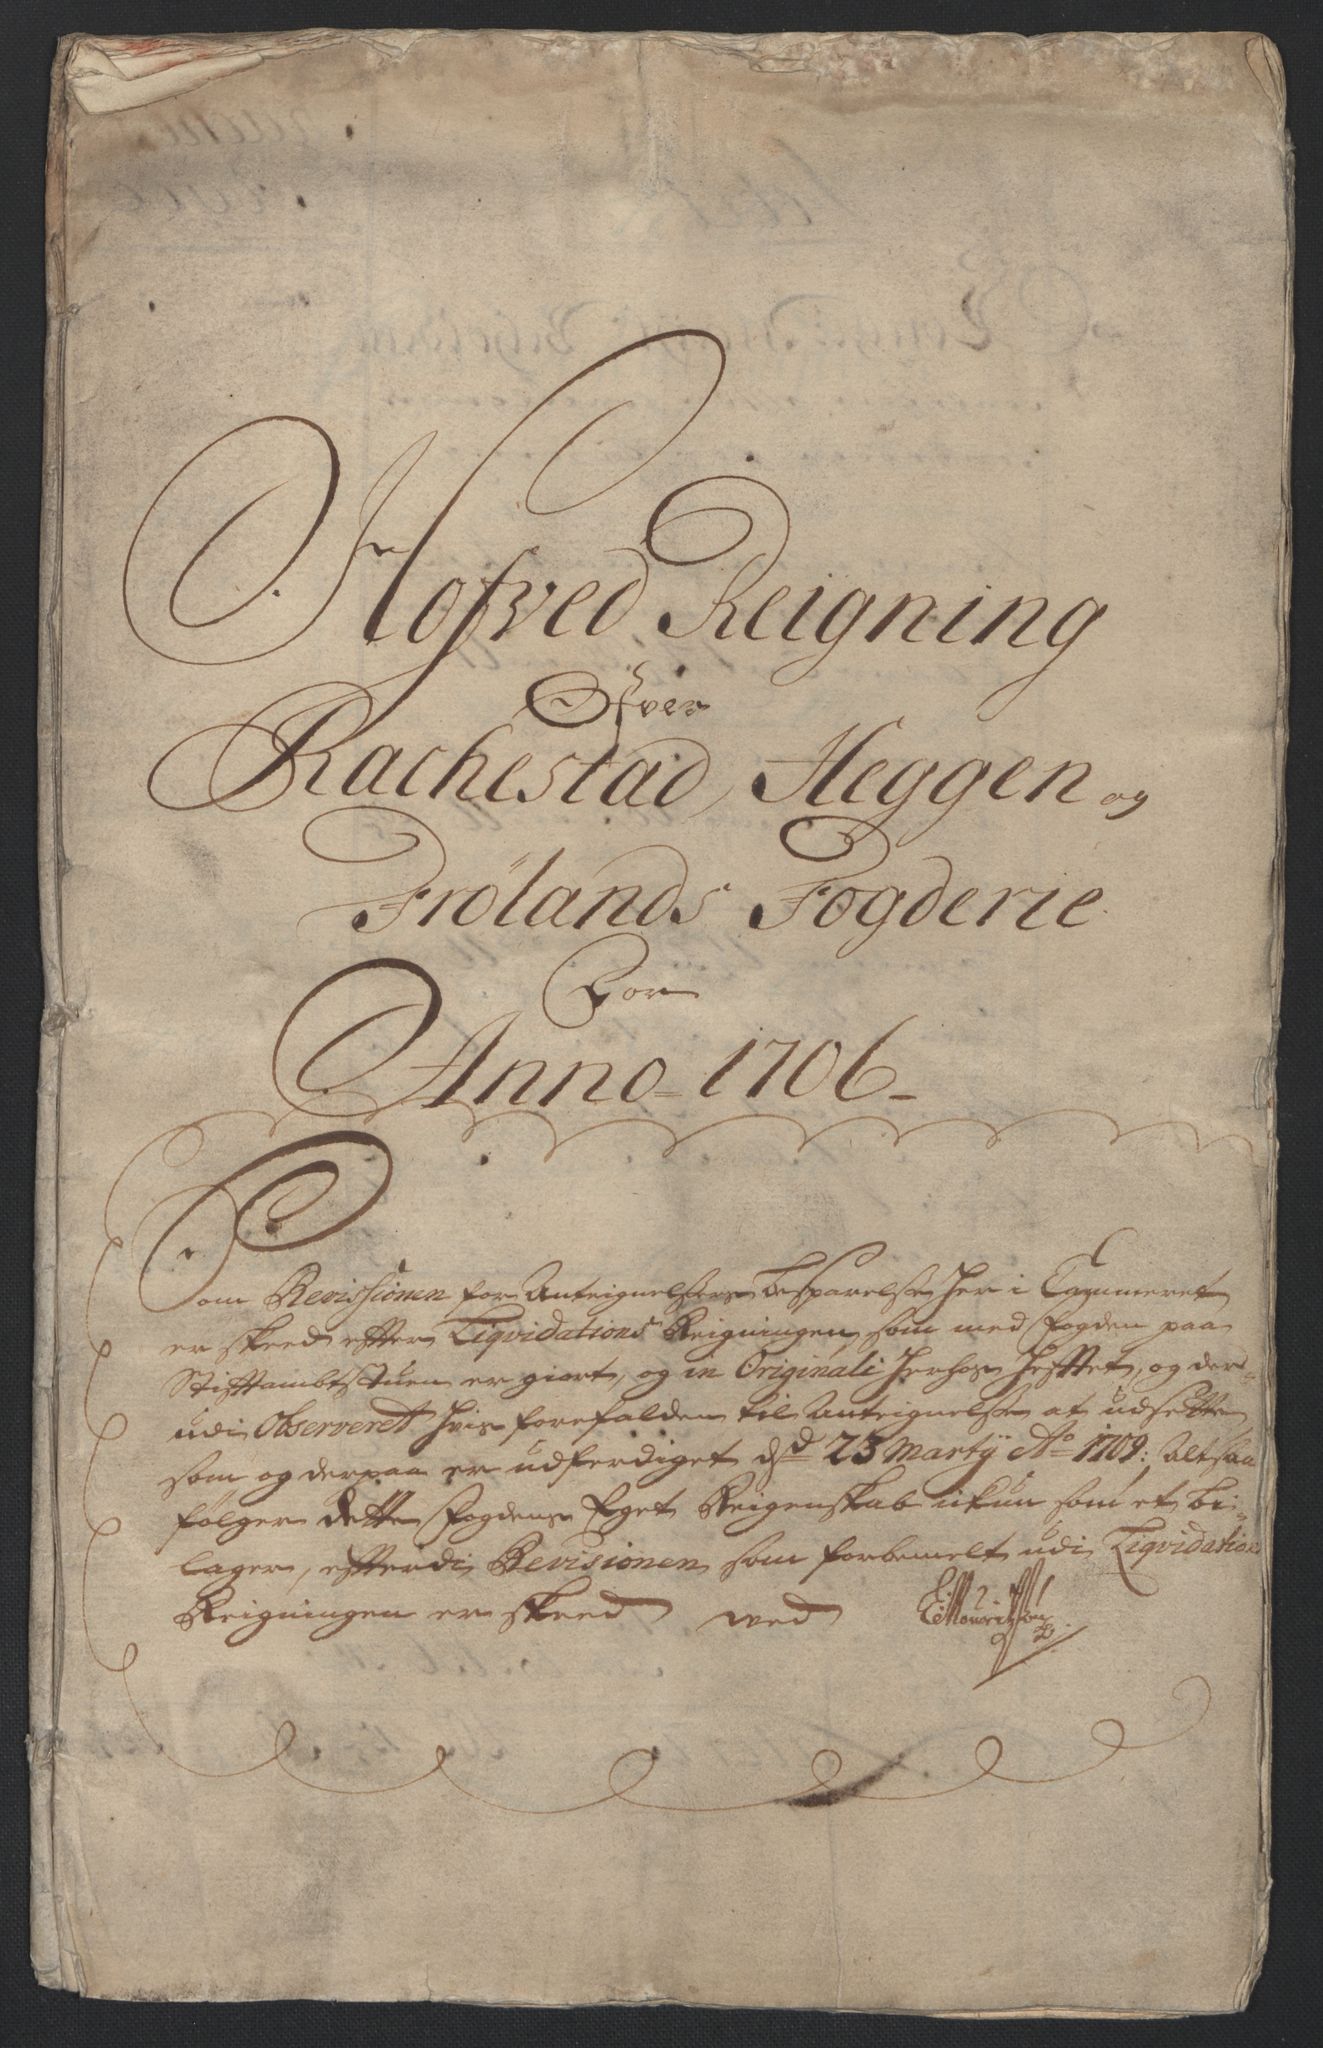 Hofved Reigning
Ofver
Rachestad, Heggen og
Frölands Fogderie
For
Anno 1706
Som Revissionen for Anteignelsers besparelse her i Cammeret
er skeed efter Liqvidations Reigningen, som med fogden paa
Stiftambtstuen er giort, og in Originali herhos hefttet, og der-
udi Observeret hvis forefalden til Anteignelse at udsette
som og derpaa er udferdiget dsd 23 Martij Ao 1709: Altsaa
følger dette fogdens Eget Reigenskab ikun som et bi-
lager, efterdi Revisionen som forbemelt udi Liqvidations
Reigningen er skeed ved